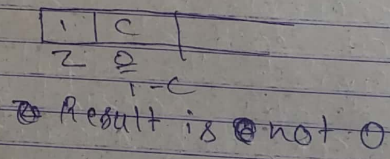 1 C
2 0
1 - C
Result is not 0